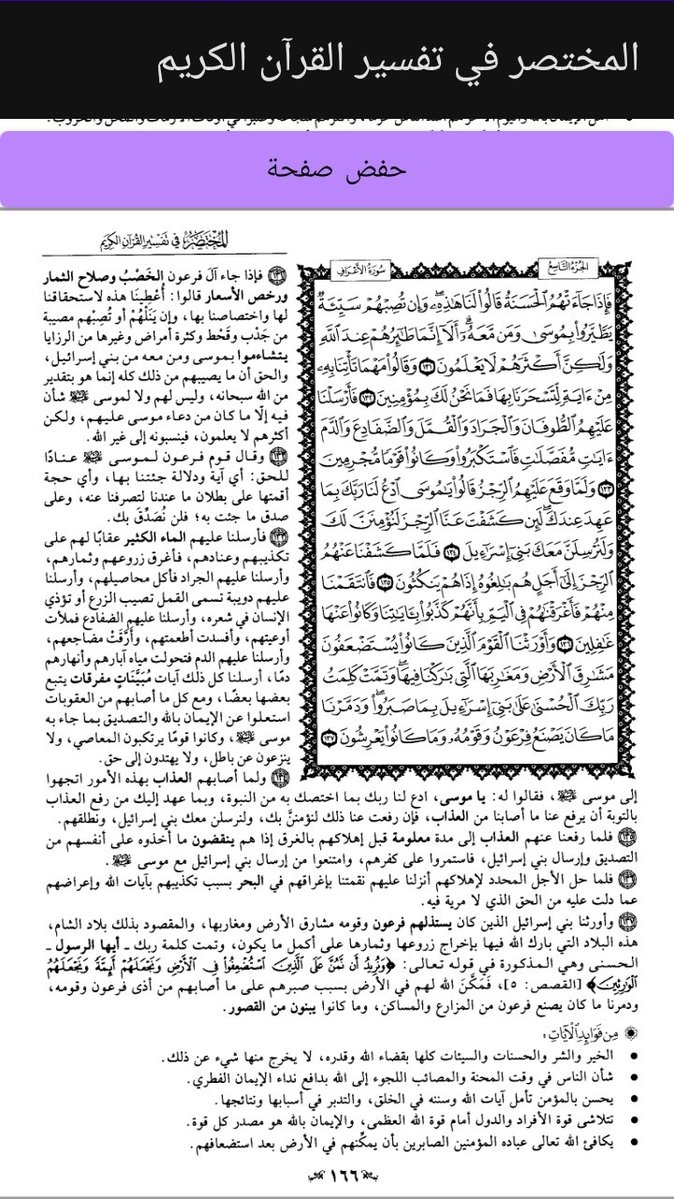 المختصر في تفسير القرآن الكريم
حفض صفحة
المختصر في تفسير القرآن الكريم
سورة الأعراف
الجزء التاسع
فَإِذَا جَاءَتْهُمُ الْحَسَنَةُ قَالُوا لَنَا هَٰذِهِ وَإِن تُصِبْهُمْ سَيِّئَةٌ
يَطَّيَّرُوا بِمُوسَىٰ وَمَن مَّعَهُ أَلَا إِنَّمَا طَائِرُهُمْ عِندَ اللَّهِ
وَلَٰكِنَّ أَكْثَرَهُمْ لَا يَعْلَمُونَ ١٣١ وَقَالُوا مَهْمَا تَأْتِنَا بِهِ
مِنْ ءَايَةٍ لِّتَسْحَرَنَا بِهَا فَمَا نَحْنُ لَكَ بِمُؤْمِنِينَ ١٣٢ فَأَرْسَلْنَا
عَلَيْهِمُ الطُّوفَانَ وَالْجَرَادَ وَالْقُمَّلَ وَالضَّفَادِعَ وَالدَّمَ
ءَايَاتٍ مُّفَصَّلَاتٍ فَاسْتَكْبَرُوا وَكَانُوا قَوْمًا مُّجْرِمِينَ
١٣٣ وَلَمَّا وَقَعَ عَلَيْهِمُ الرِّجْزُ قَالُوا يَا مُوسَى ادْعُ لَنَا رَبَّكَ بِمَا
عَهِدَ عِندَكَ لَئِن كَشَفْتَ عَنَّا الرِّجْزَ لَنُؤْمِنَنَّ لَكَ
وَلَنُرْسِلَنَّ مَعَكَ بَنِي إِسْرَاءِيلَ ١٣٤ فَلَمَّا كَشَفْنَا عَنْهُمُ
الرِّجْزَ إِلَىٰ أَجَلٍ هُم بَالِغُوهُ إِذَا هُمْ يَنكُثُونَ ١٣٥ فَانتَقَمْنَا
مِنْهُمْ فَأَغْرَقْنَاهُمْ فِي الْيَمِّ بِأَنَّهُمْ كَذَّبُوا بِآيَاتِنَا وَكَانُوا عَنْهَا
غَافِلِينَ ١٣٦ وَأَوْرَثْنَا الْقَوْمَ الَّذِينَ كَانُوا يُسْتَضْعَفُونَ
مَشَارِقَ الْأَرْضِ وَمَغَارِبَهَا الَّتِي بَارَكْنَا فِيهَا وَتَمَّتْ كَلِمَتُ
رَبِّكَ الْحُسْنَىٰ عَلَىٰ بَنِي إِسْرَاءِيلَ بِمَا صَبَرُوا وَدَمَّرْنَا
مَا كَانَ يَصْنَعُ فِرْعَوْنُ وَقَوْمُهُ وَمَا كَانُوا يَعْرِشُونَ ١٣٧
١٣١ فإذا جاء آلَ فرعون الخَصْبُ وصلاح الثمار
ورخص الأسعار قالوا: أُعطِينَا هذه لاستحقاقنا
لها واختصاصنا بها، وإن يَنَلْهُمْ أو تُصِبْهم مصيبة
من جَدْب وقَحْط وكثرة أمراض وغيرها من الرزايا
يتشاءموا بموسى ومن معه من بني إسرائيل،
والحق أن ما يصيبهم من ذلك كله إنما هو بتقدير
من الله سبحانه، وليس لهم ولا لموسى ﷺ شأن
فيه إلّا ما كان من دعاء موسى عليهم، ولكن
أكثرهم لا يعلمون، فينسبونه إلى غير الله.
١٣٢ وقال قوم فرعون لموسى ﷺ عنادًا
للحق: أي آية ودلالة جئتنا بها، وأي حجة
أقمتها على بطلان ما عندنا لتصرفنا عنه، وعلى
صدق ما جئت به؛ فلن نُصَدِّقَ بك.
١٣٣ فأرسلنا عليهم الماء الكثير عقابًا لهم على
تكذيبهم وعنادهم، فأغرق زروعهم وثمارهم،
وأرسلنا عليهم الجراد فأكل محاصيلهم، وأرسلنا
عليهم دويبة تسمى القمل تصيب الزرع أو تؤذي
الإنسان في شعره، وأرسلنا عليهم الضفادع فملأت
أوعيتهم، وأفسدت أطعمتهم، وأَرَّقَتْ مضاجعهم،
وأرسلنا عليهم الدم فتحولت مياه آبارهم وأنهارهم
دمًا، أرسلنا كل ذلك آيات مُبَيَّنَاتٍ مفرقات يتبع
بعضها بعضًا، ومع كل ما أصابهم من العقوبات
استعلوا عن الإيمان بالله والتصديق بما جاء به
موسى ﷺ، وكانوا قومًا يرتكبون المعاصي، ولا
ينزعون عن باطل، ولا يهتدون إلى حق.
١٣٤ ولما أصابهم العذاب بهذه الأمور اتجهوا
إلى موسى ﷺ، فقالوا له: يا موسى، ادع لنا ربك بما اختصك به من النبوة، وبما عهد إليك من رفع العذاب
بالتوبة أن يرفع عنا ما أصابنا من العذاب، فإن رفعت عنا ذلك لنؤمننَّ بك، ولنرسلن معك بني إسرائيل، ونطلقهم.
١٣٥ فلما رفعنا عنهم العذاب إلى مدة معلومة قبل إهلاكهم بالغرق إذا هم ينقضون ما أخذوه على أنفسهم من
التصديق وإرسال بني إسرائيل، فاستمروا على كفرهم، وامتنعوا من إرسال بني إسرائيل مع موسى ﷺ.
١٣٦ فلما حل الأجل المحدد لإهلاكهم أنزلنا عليهم نقمتنا بإغراقهم في البحر بسبب تكذيبهم بآيات الله وإعراضهم
عما دلت عليه من الحق الذي لا مرية فيه.
١٣٧ وأورثنا بني إسرائيل الذين كان يستذلهم فرعون وقومه مشارق الأرض ومغاربها، والمقصود بذلك بلاد الشام،
هذه البلاد التي بارك الله فيها بإخراج زروعها وثمارها على أكمل ما يكون، وتمت كلمة ربك - أيها الرسول -
الحسنى وهي المذكورة في قوله تعالى: ﴿وَنُرِيدُ أَن نَّمُنَّ عَلَى الَّذِينَ اسْتُضْعِفُوا فِي الْأَرْضِ وَنَجْعَلَهُمْ أَئِمَّةً وَنَجْعَلَهُمُ
الْوَارِثِينَ﴾ [القصص: ٥]، فَمَكَّنَ الله لهم في الأرض بسبب صبرهم على ما أصابهم من أذى فرعون وقومه،
ودمرنا ما كان يصنع فرعون من المزارع والمساكن، وما كانوا يبنون من القصور.
من فوائد الآيات:
• الخير والشر والحسنات والسيئات كلها بقضاء الله وقدره، لا يخرج منها شيء عن ذلك.
• شأن الناس في وقت المحنة والمصائب اللجوء إلى الله بدافع نداء الإيمان الفطري.
• يحسن بالمؤمن تأمل آيات الله وسننه في الخلق، والتدبر في أسبابها ونتائجها.
• تتلاشى قوة الأفراد والدول أمام قوة الله العظمى، والإيمان بالله هو مصدر كل قوة.
• يكافئ الله تعالى عباده المؤمنين الصابرين بأن يمكِّنهم في الأرض بعد استضعافهم.
١٦٦